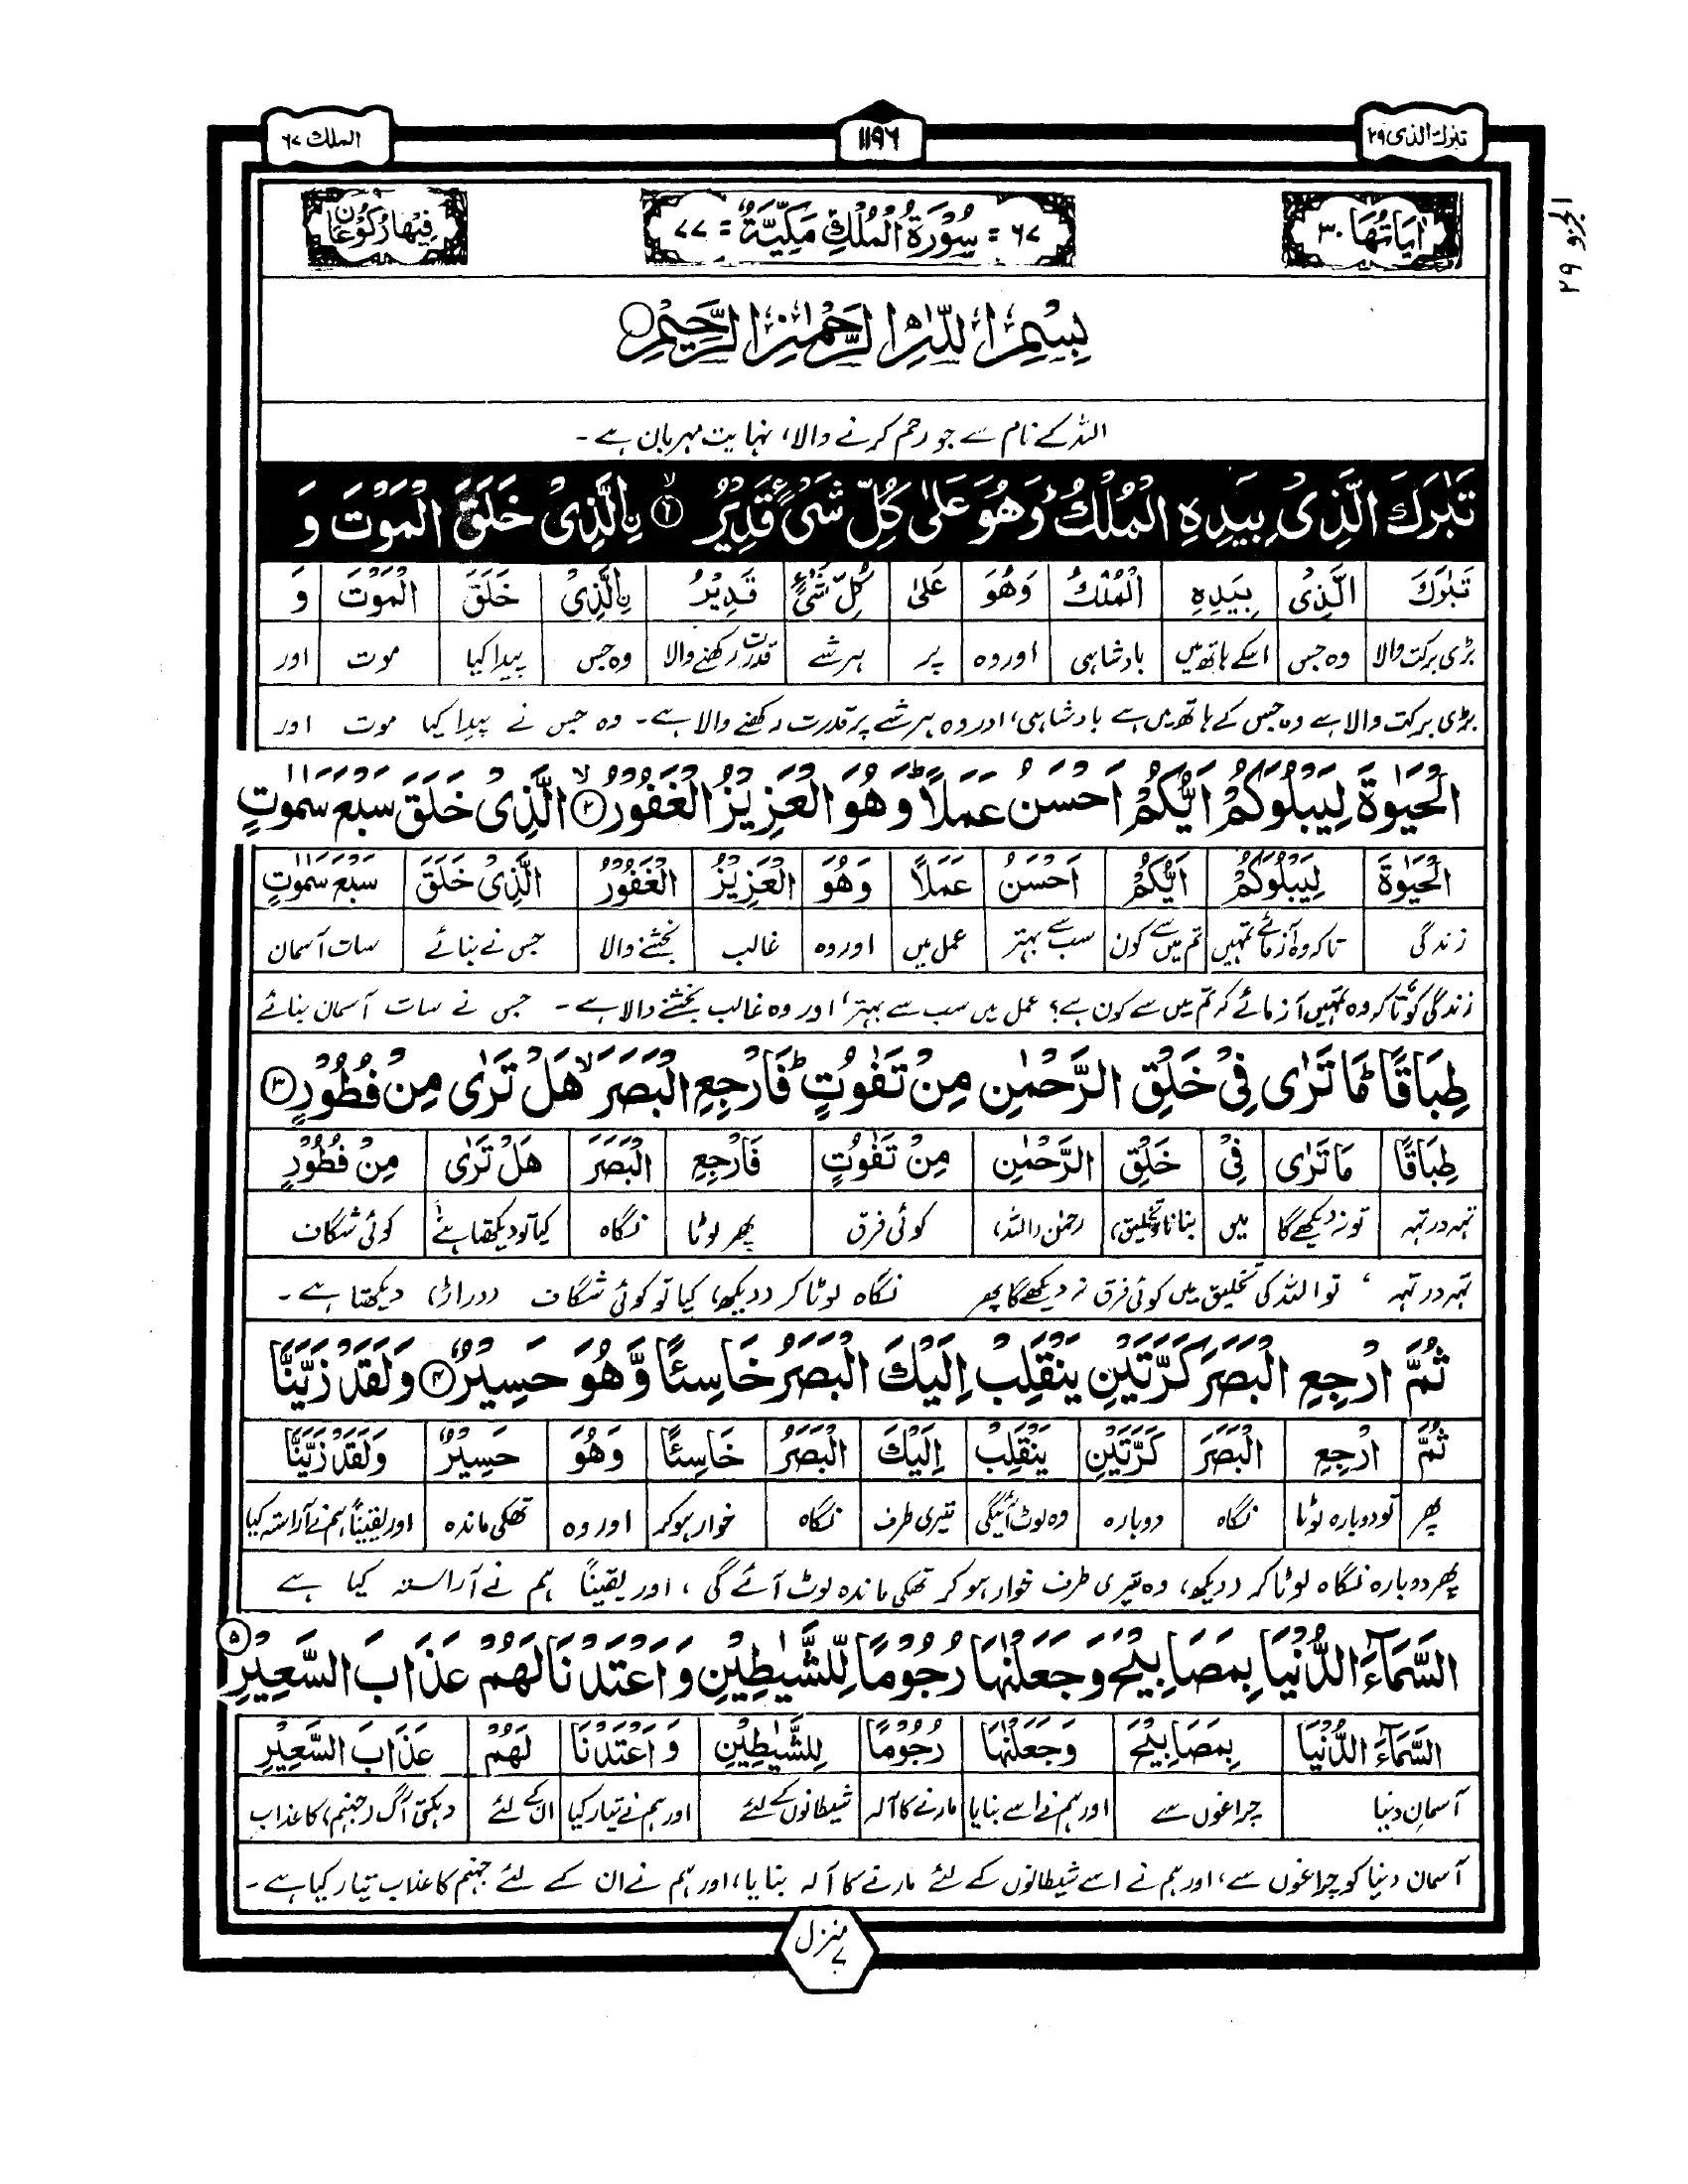 تبٰرك الذى ٢٩
١١٩٦
الملك ٦٧
الجزو ٢٩
اٰيَاتُهَا ٣٠
٦٧ = سُوْرَةُ الْمُلْكِ مَكِّيَّةٌ = ٧٧
فِيْهَا رُكُوْعَانِ
بِسْمِ اللّٰهِ الرَّحْمٰنِ الرَّحِيْمِ
اللہ کے نام سے جو رحم کرنے والا، نہایت مہربان ہے۔
تَبٰرَكَ الَّذِىْ بِيَدِهِ الْمُلْكُ وَهُوَ عَلٰى كُلِّ شَىْءٍ قَدِيْرُ ۙ﴿١﴾ نِ الَّذِىْ خَلَقَ الْمَوْتَ وَ
تَبٰرَكَ الَّذِىْ بِيَدِهِ الْمُلْكُ وَهُوَ عَلٰى كُلِّ شَىْءٍ قَدِيْرُ نِ الَّذِىْ خَلَقَ الْمَوْتَ وَ
بڑی برکت والا وہ جس اسکے ہاتھ میں بادشاہی اور وہ پر ہر شے قدرت رکھنے والا وہ جس پیدا کیا موت اور
بڑی برکت والا ہے وہ جس کے ہاتھ میں ہے بادشاہی، اور وہ ہر شے پر قدرت رکھنے والا ہے۔ وہ جس نے پیدا کیا موت اور
الْحَيٰوةَ لِيَبْلُوَكُمْ اَيُّكُمْ اَحْسَنُ عَمَلًا ؕ وَهُوَ الْعَزِيْزُ الْغَفُوْرُ ۙ﴿٢﴾ الَّذِىْ خَلَقَ سَبْعَ سَمٰوٰتٍ
الْحَيٰوةَ لِيَبْلُوَكُمْ اَيُّكُمْ اَحْسَنُ عَمَلًا وَهُوَ الْعَزِيْزُ الْغَفُوْرُ الَّذِىْ خَلَقَ سَبْعَ سَمٰوٰتٍ
زندگی تاکہ وہ آزمائے تمہیں تم میں سے کون سب سے بہتر عمل میں اور وہ غالب بخشنے والا جس نے بنائے سات آسمان
زندگی کو تاکہ وہ تمہیں آزمائے کہ تم میں سے کون ہے؟ عمل میں سب سے بہتر، اور وہ غالب بخشنے والا ہے۔ جس نے سات آسمان بنائے
طِبَاقًا ؕ مَا تَرٰى فِىْ خَلْقِ الرَّحْمٰنِ مِنْ تَفٰوُتٍ ؕ فَارْجِعِ الْبَصَرَ ۙ هَلْ تَرٰى مِنْ فُطُوْرٍ ﴿٣﴾
طِبَاقًا مَا تَرٰى فِىْ خَلْقِ الرَّحْمٰنِ مِنْ تَفٰوُتٍ فَارْجِعِ الْبَصَرَ هَلْ تَرٰى مِنْ فُطُوْرٍ
تہہ در تہہ تو نہ دیکھے گا میں بنانا (تخلیق) رحمٰن (اللہ) کوئی فرق پھر لوٹا نگاہ کیا تو دیکھتا ہے کوئی شگاف
تہہ در تہہ، تو اللہ کی تخلیق میں کوئی فرق نہ دیکھے گا پھر نگاہ لوٹا کر (دیکھ) کیا تو کوئی شگاف (دراڑ) دیکھتا ہے۔
ثُمَّ ارْجِعِ الْبَصَرَ كَرَّتَيْنِ يَنْقَلِبْ اِلَيْكَ الْبَصَرُ خَاسِئًا وَّهُوَ حَسِيْرٌ ﴿٤﴾ وَلَقَدْ زَيَّنَّا
ثُمَّ ارْجِعِ الْبَصَرَ كَرَّتَيْنِ يَنْقَلِبْ اِلَيْكَ الْبَصَرُ خَاسِئًا وَّهُوَ حَسِيْرٌ وَلَقَدْ زَيَّنَّا
پھر تو دوبارہ لوٹا نگاہ دوبارہ وہ لوٹ آئیگی تیری طرف نگاہ خوار ہو کر اور وہ تھکی ماندہ اور یقیناً ہم نے آراستہ کیا
پھر دوبارہ نگاہ لوٹا کر (دیکھ)، وہ تیری طرف خوار ہو کر تھکی ماندہ لوٹ آئے گی، اور یقیناً ہم نے آراستہ کیا ہے
السَّمَآءَ الدُّنْيَا بِمَصَابِيْحَ وَجَعَلْنٰهَا رُجُوْمًا لِّلشَّيٰطِيْنِ وَاَعْتَدْنَا لَهُمْ عَذَابَ السَّعِيْرِ ﴿٥﴾
السَّمَآءَ الدُّنْيَا بِمَصَابِيْحَ وَجَعَلْنٰهَا رُجُوْمًا لِلشَّيٰطِيْنِ وَاَعْتَدْنَا لَهُمْ عَذَابَ السَّعِيْرِ
آسمانِ دنیا چراغوں سے اور ہم نے اسے بنایا مارنے کا آلہ شیطانوں کے لئے اور ہم نے تیار کیا ان کے لئے دہکتی آگ (جہنم) کا عذاب
آسمان دنیا کو چراغوں سے، اور ہم نے اسے شیطانوں کے لئے مارنے کا آلہ بنایا، اور ہم نے ان کے لئے جہنم کا عذاب تیار کیا ہے۔
منزل ٧